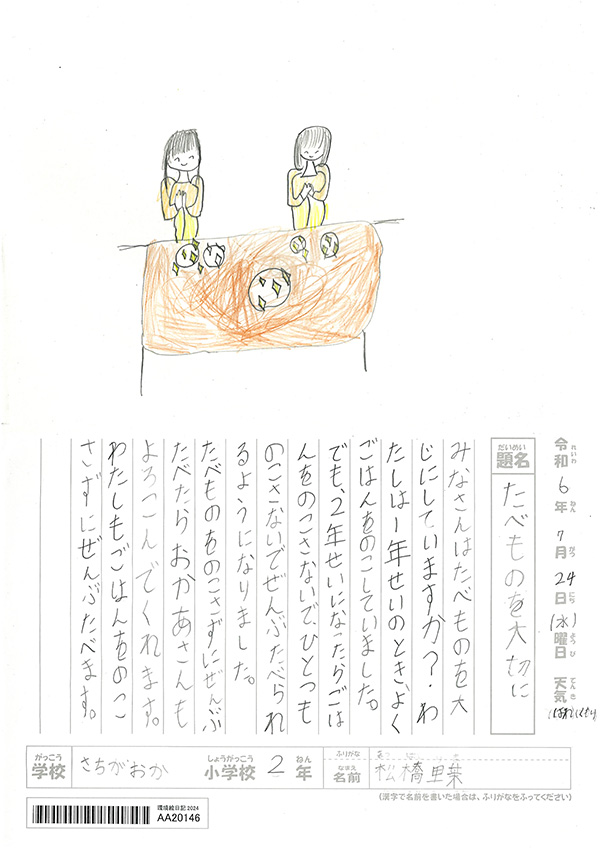 令和6年7月24日(水)曜日 天気
れいわ ねん がつ にち ようび てんき
だいめい
題名 たべものを大切に
みなさんはたべものを大
じにしていますか?.わ
たしは1年せいのとき、よく
ごはんをのこしていました。
でも、2年せいになったらごは
んをのこさないで、ひとつも
のこさないでぜんぶたべられ
るようになりました。
たべものをのこさずにぜんぶ
たべたらおかあさんも
よろこんでくれます。
わたしもごはんをのこ
さずにぜんぶたべます。
がっこう しょうがっこう ねん ふりがな
学校 さちがおか 小学校 2年
なまえ
名前 松橋里菜
(漢字で名前を書いた場合は、ふりがなをふってください)
環境絵日記2024
AA20146